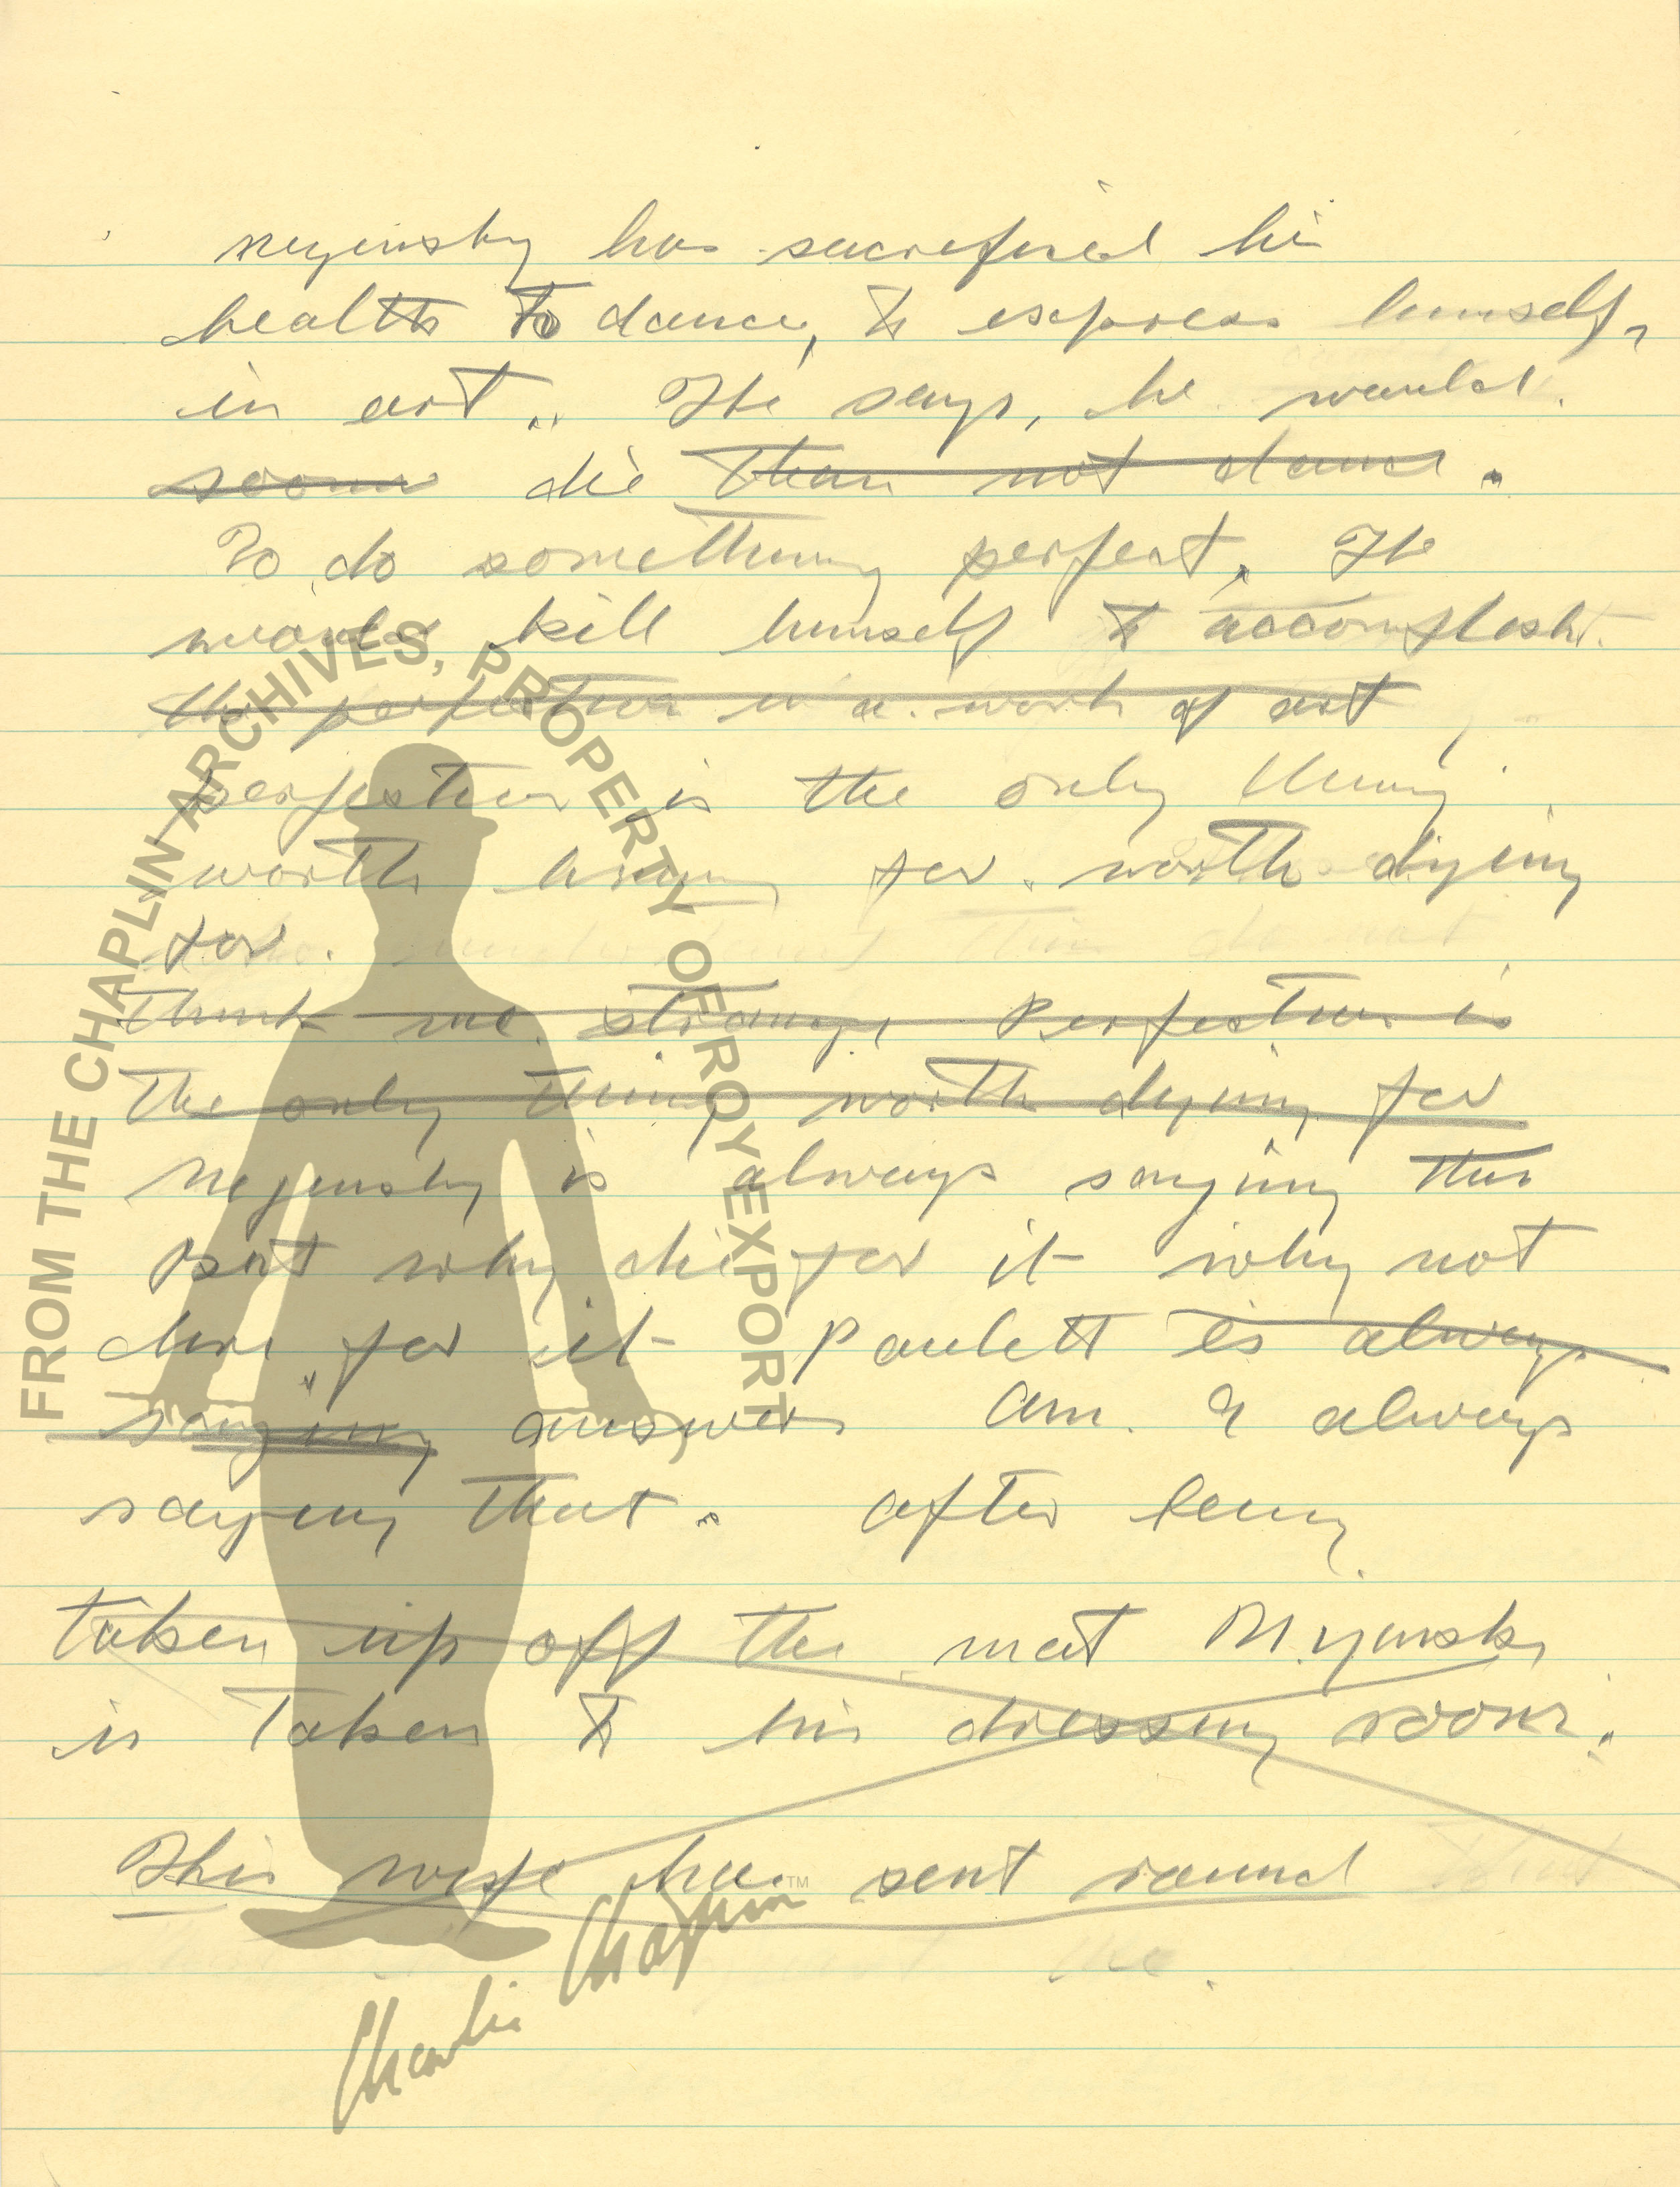 neyinsky has sacrefised his
health to dance, to express himself,
in art.. He says, he would.
sooner die than not dance.
To do something perfect. He
would kill himself to accomplesh it.
the perfection in a work of art
perfection is the only thing
worth living for. worth dying
for.
Think me strange Perfection is
the only thing worth dying for
Nejinsky is always saying this
But why die for it why not
live for it Paulett is always
saying answers Am I always
saying that. after being
taken up off the mat Nijinsky
is Taken to his dressing room.
His wife has sent round
FROM THE CHAPLIN ARCHIVES, PROPERTY OF ROY EXPORT
TM
Charlie Chaplin